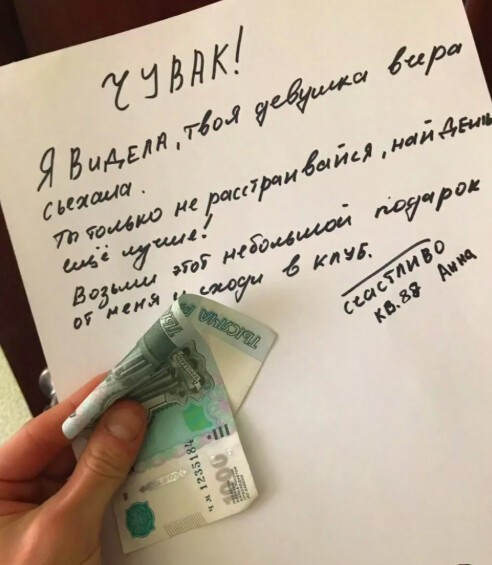 ЧУВАК!
Я ВИДЕЛА, твоя девушка вчера
съехала.
Ты только не расстраивайся, найдешь
ещё лучше!
Возьми этот небольшой подарок
от меня и сходи в клуб.
счастливо
кв. 38 Анна
ТЫСЯЧА
1000
1235184